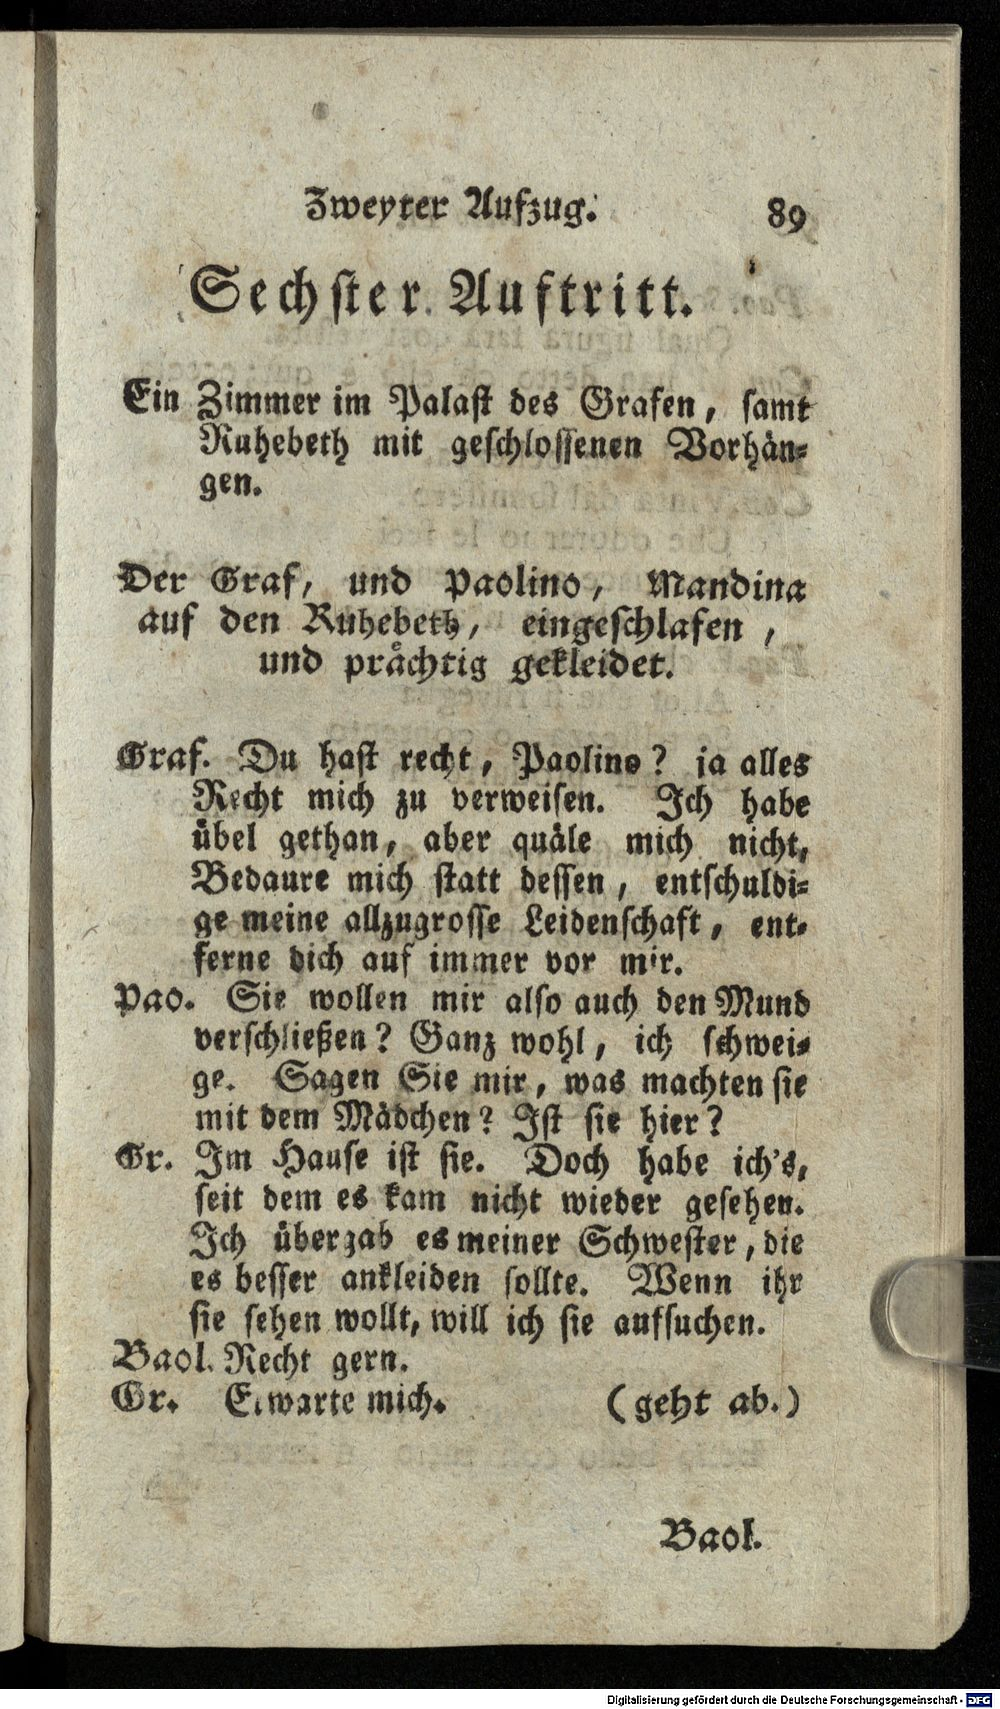 Zweyter Aufzug. 89
Sechster Auftritt.
Ein Zimmer im Palast des Grafen, samt
Ruhebeth mit geschlossenen Vorhän-
gen.
Der Graf, und Paolino, Mandina
auf den Ruhebeth, eingeschlafen,
und prächtig gekleidet.
Graf. Du hast recht, Paolino? ja alles
Recht mich zu verweisen. Ich habe
übel gethan, aber quäle mich nicht,
Bedaure mich statt dessen, entschuldi-
ge meine allzugrosse Leidenschaft, ent-
ferne dich auf immer vor mir.
Pao. Sie wollen mir also auch den Mund
verschließen? Ganz wohl, ich schwei-
ge. Sagen Sie mir, was machten sie
mit dem Mädchen? Ist sie hier?
Gr. Im Hause ist sie. Doch habe ich's,
seit dem es kam nicht wieder gesehen.
Ich übergab es meiner Schwester, die
es besser ankleiden sollte. Wenn ihr
sie sehen wollt, will ich sie aufsuchen.
Baol. Recht gern.
Gr. Erwarte mich. (geht ab.)
Baol.
Digitalisierung gefördert durch die Deutsche Forschungsgemeinschaft - DFG